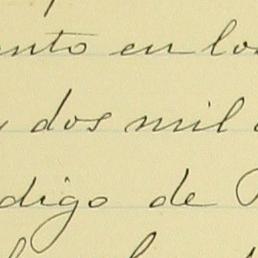 ento en los
dos mil
digo de P